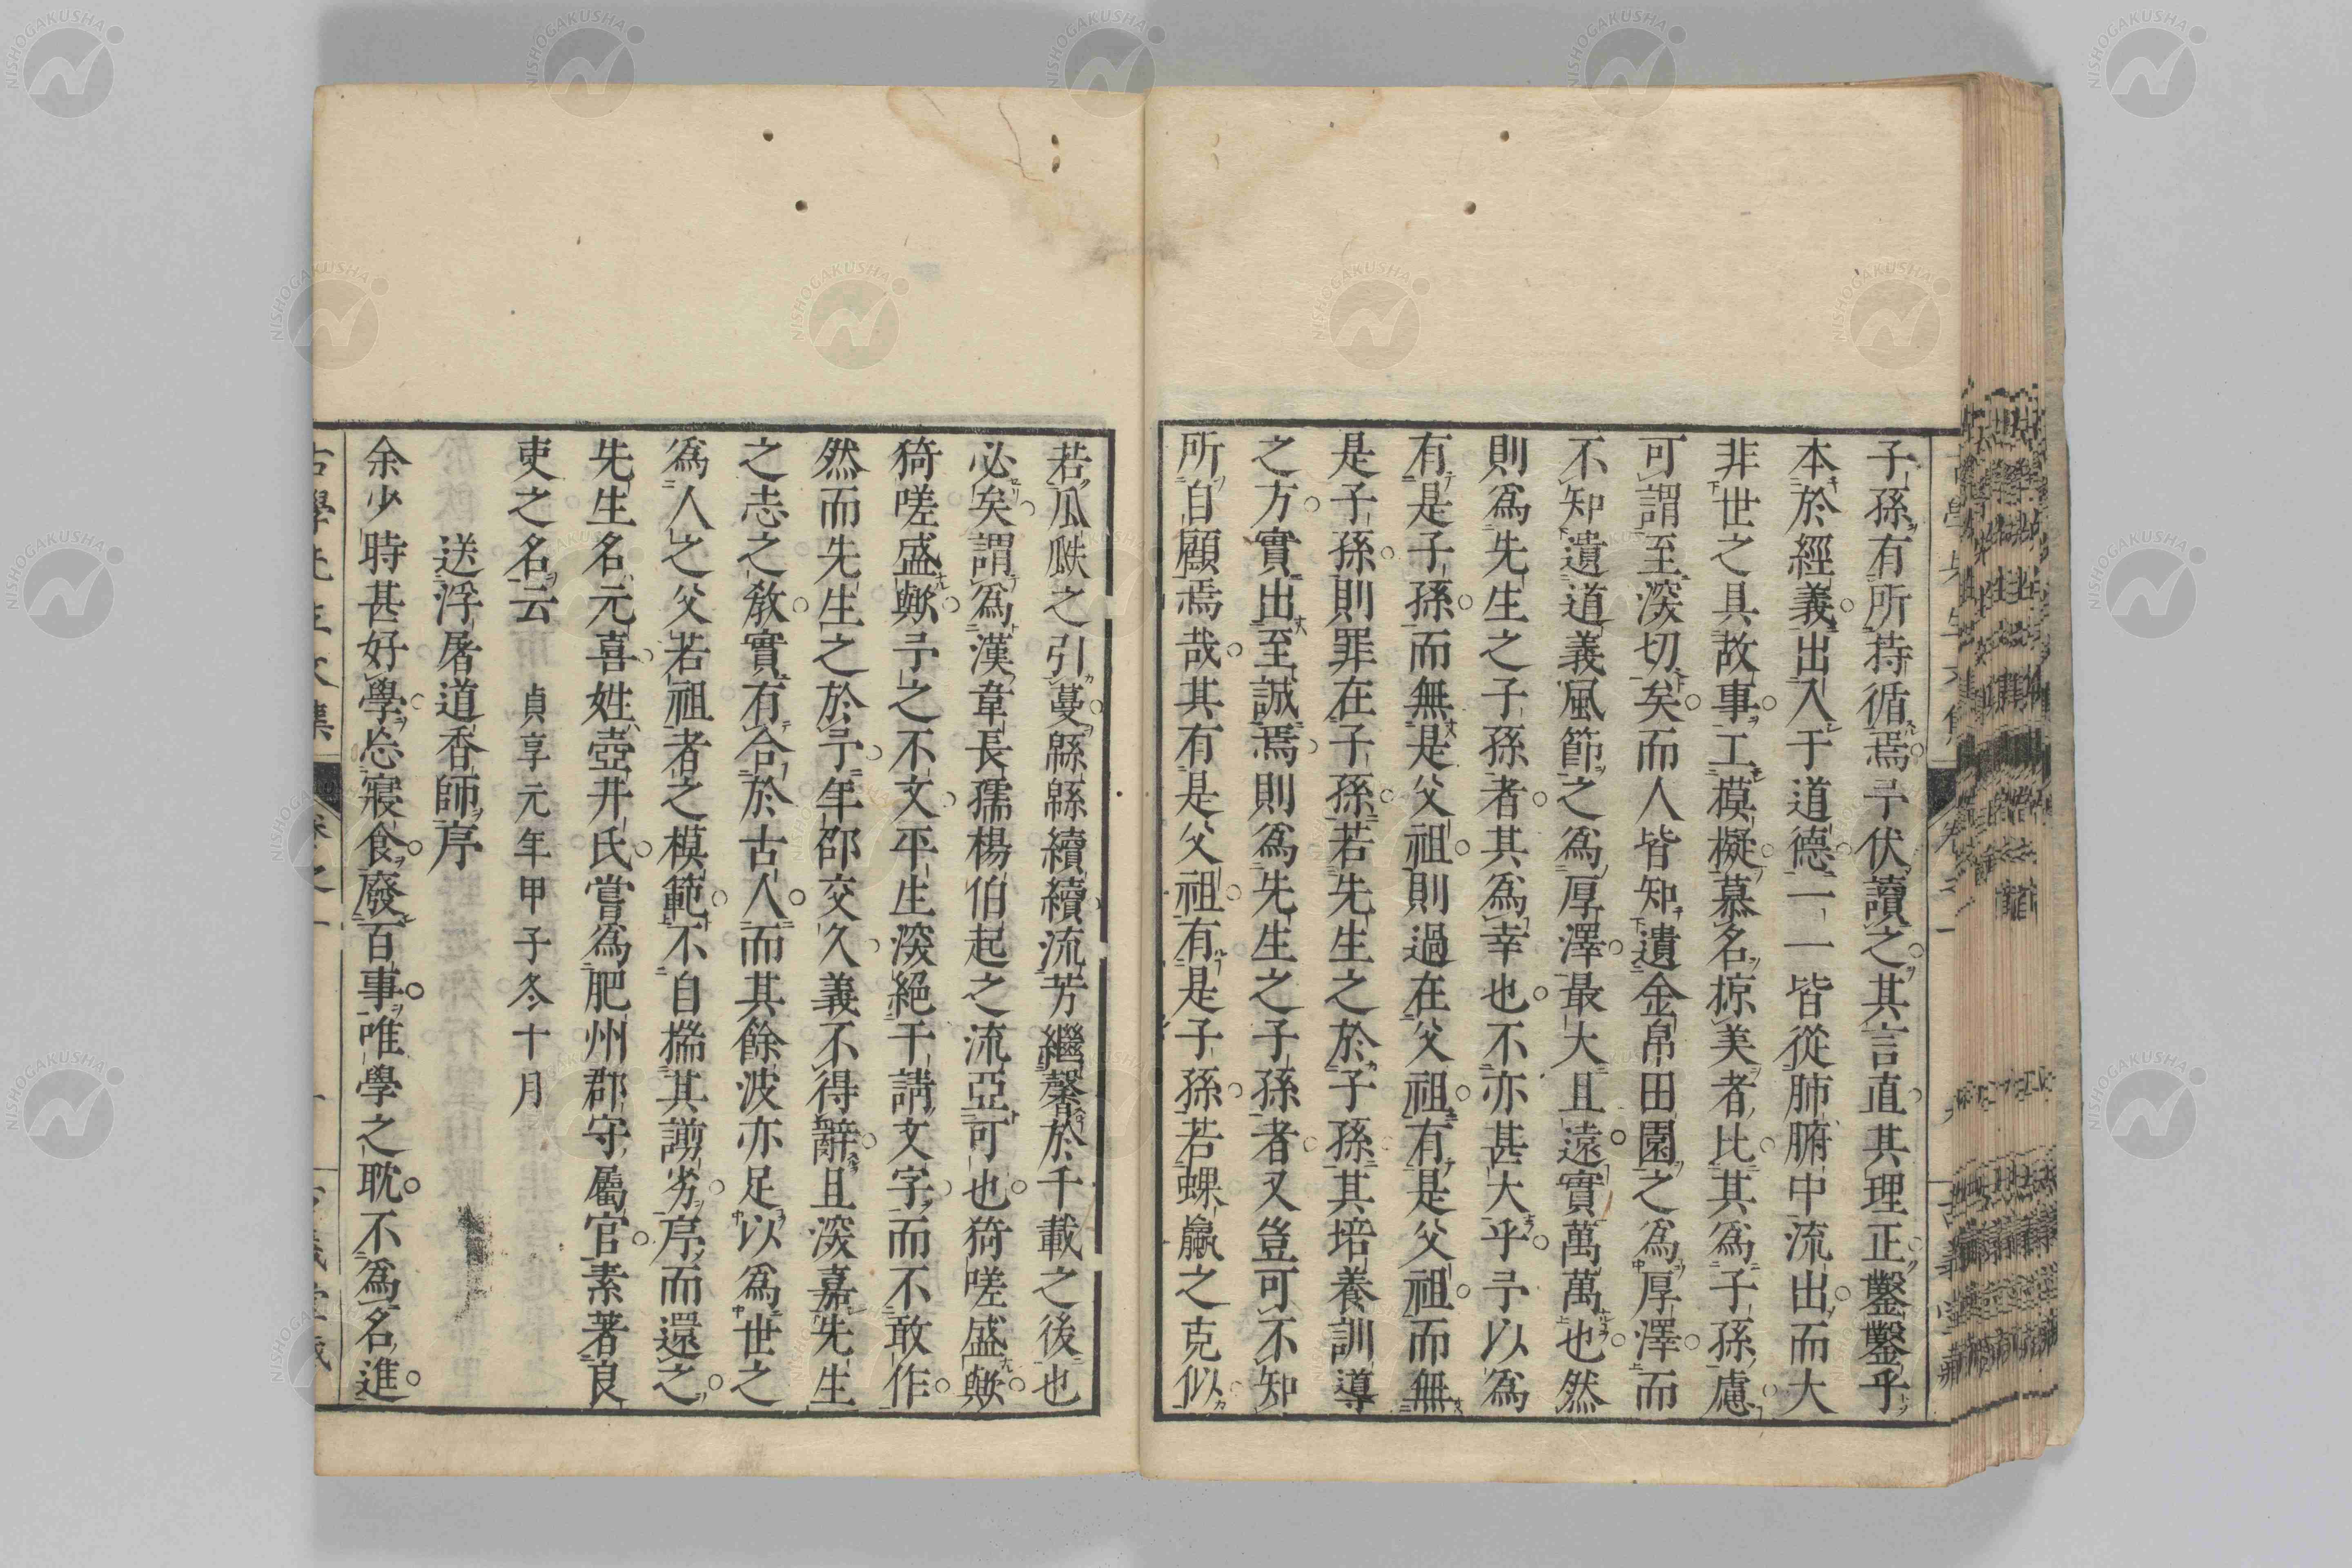 子孫有所持循焉予伏讀之其言直其理正鑿鑿乎
本於經義出入于道德一一皆從肺腑中流出而大
非世之具故事工模擬慕名掠美者比其爲子孫慮
可謂至深切矣而人皆知遺金帛田園之爲厚澤而
不知遺道義風節之爲厚澤最大且遠實萬萬也然
則爲先生之子孫者其爲幸也不亦甚大乎予以爲
有是子孫而無是父祖則過在父祖有是父祖而無
是子孫則罪在子孫若先生之於子孫其培養訓導
之方實出至誠焉則爲先生之子孫者又豈可不知
所自顧焉哉其有是父祖有是子孫若蜾蠃之克似
若瓜瓞之引蔓緜緜續續流芳繼馨於千載之後也
必矣謂爲漢韋長孺楊伯起之流亞可也猗嗟盛歟
猗嗟盛歟予之不文平生深絕干請文字而不敢作
然而先生之於予年邵交久義不得辭且深嘉先生
之志之教實有合於古人而其餘波亦足以爲世之
爲人之父若祖者之模範不自揣其謭劣序而還之
先生名元喜姓壺井氏嘗爲肥州郡守屬官素著良
吏之名云　貞享元年甲子冬十月
送浮屠道香師序
余少時甚好學忘寢食廢百事唯學之耽不爲名進
古學先生文集
NISHOGAKUSHA